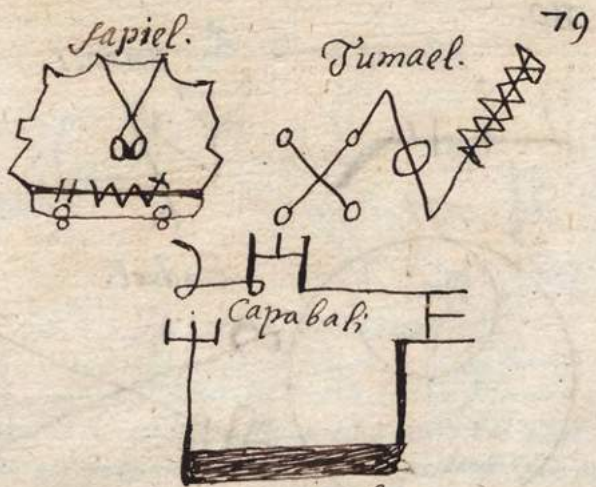 79
sapiel.
Tumael.
Capabali